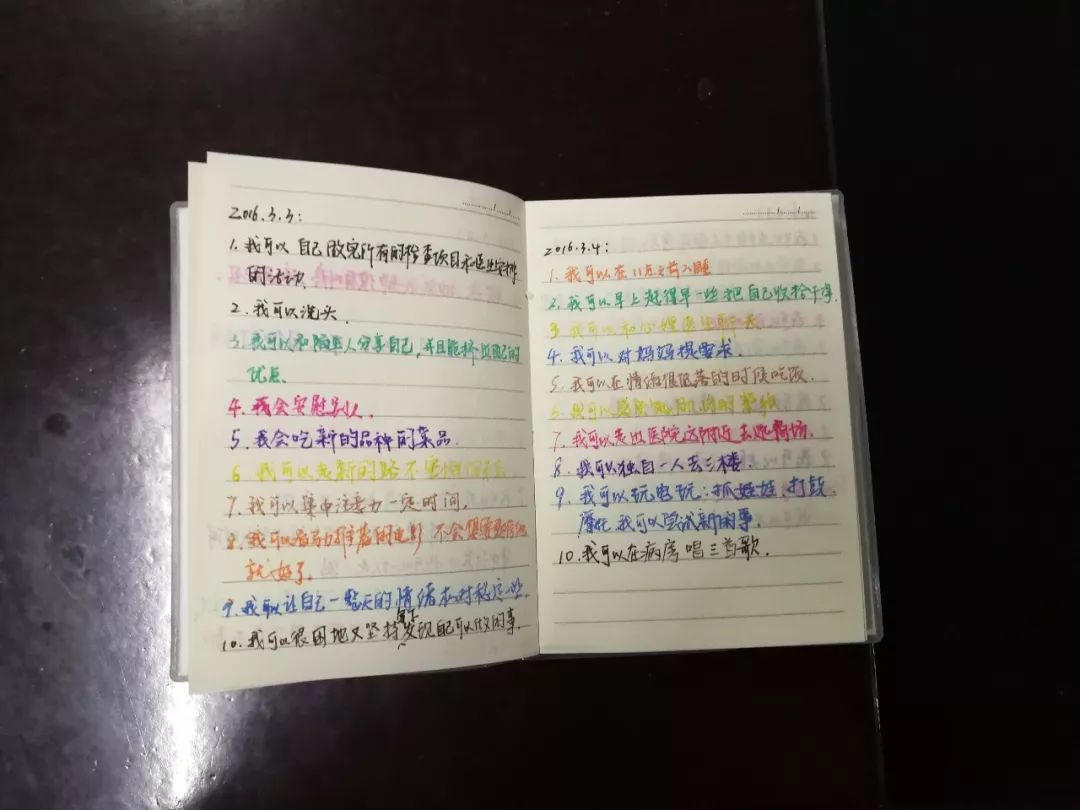 2016.3.3:
1.我可以 自己做完所有的检查项目和医生安排
的活动.
2.我可以洗头.
3.我可以和陌生人分享自己,并且能挤出自己的
优点.
4.我会安慰别人.
5.我会吃新的品种的菜品.
6.我可以走新的路不
7.我可以集中注意力一定时间.
8.我可以看 推荐的电影 不会
就好了.
9.我可以让自己一整天的情绪相对稳定些.
10.我可以很困地又坚持写下发现自己可以做的事.
2016.3.4:
1.我可以在11点之前入睡
2.我可以早上起得早一些把自己收拾干净.
3.我可以和心理医生聊
4.我可以对妈妈提要求.
5.我可以在情绪很低落的时候吃饭.
6.我可以感
7.我可以走出医院这附近去逛商场.
8.我可以独自一人去三楼.
9.我可以玩电玩:抓娃娃、打鼓、
摩托.我可以尝试新的事.
10.我可以在病房唱三首歌.